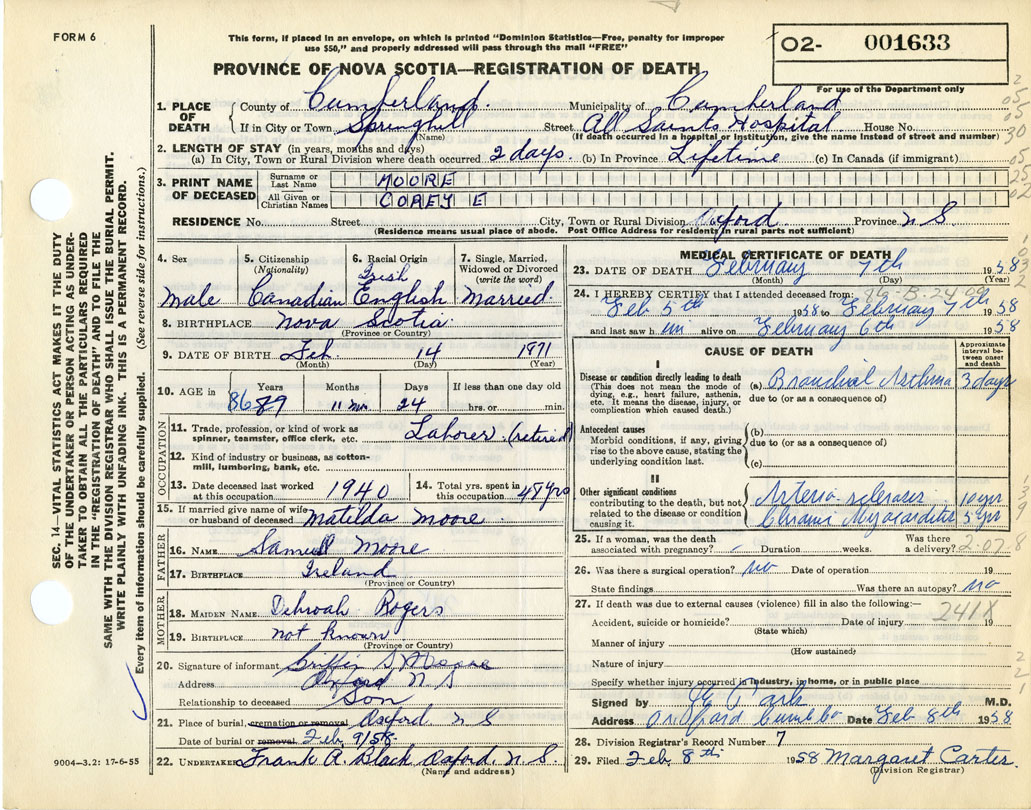 FORM 6
This form, if placed in an envelope, on which is printed "Dominion Statistics—Free, penalty for improper
use $50," and properly addressed will pass through the mail "FREE"
PROVINCE OF NOVA SCOTIA—REGISTRATION OF DEATH
O2- 001633
For use of the Department only
1. PLACE OF DEATH County of Cumberland. Municipality of Cumberland
If in City or Town Springhill Street All Saints Hospital House No.
(Name) (If death occurred in a hospital or institution, give the name instead of street and number)
2. LENGTH OF STAY (in years, months and days)
(a) In City, Town or Rural Division where death occurred 2 days. (b) In Province Lifetime (c) In Canada (if immigrant)
3. PRINT NAME OF DECEASED Surname or Last Name MOORE
All Given or Christian Names COREY E
RESIDENCE No. Street City, Town or Rural Division Oxford Province N S
(Residence means usual place of abode. Post Office Address for residents in rural parts not sufficient)
4. Sex 5. Citizenship (Nationality) 6. Racial Origin 7. Single, Married, Widowed or Divorced (write the word)
Irish
male Canadian English Married
8. BIRTHPLACE Nova Scotia
(Province or Country)
9. DATE OF BIRTH Feb. 14 1871
(Month) (Day) (Year)
10. AGE in Years Months Days If less than one day old
86 89 11 mn 24 hrs. or min.
OCCUPATION
11. Trade, profession, or kind of work as Laborer (retired)
spinner, teamster, office clerk, etc.
12. Kind of industry or business, as cotton-
mill, lumbering, bank, etc.
13. Date deceased last worked at this occupation 1940 14. Total yrs. spent in this occupation 48 yrs
15. If married give name of wife or husband of deceased Matilda Moore
FATHER
16. NAME Samuel Moore
17. BIRTHPLACE Ireland
(Province or Country)
MOTHER
18. MAIDEN NAME Dehroah Rogers
19. BIRTHPLACE not known
(Province or Country)
20. Signature of informant Griffin S Moore
Address Oxford N S
Relationship to deceased Son
21. Place of burial, cremation or removal Oxford N S
Date of burial or removal Feb 9/58
22. UNDERTAKER Frank A. Black Oxford, N. S.
(Name and address)
9004—3.2: 17-6-55
MEDICAL CERTIFICATE OF DEATH
23. DATE OF DEATH February 7th 1958
(Month) (Day) (Year)
24. I HEREBY CERTIFY that I attended deceased from:
Feb 5th 1958 to February 7th 1958
and last saw him alive on February 6th 1958
CAUSE OF DEATH
Approximate interval between onset and death
I
Disease or condition directly leading to death (a) Bronchial Asthma 3 days
(This does not mean the mode of dying, e.g., heart failure, asthenia, etc. It means the disease, injury, or complication which caused death.)
due to (or as a consequence of)
Antecedent causes (b)
Morbid conditions, if any, giving rise to the above cause, stating the underlying condition last.
due to (or as a consequence of)
(c)
II
Other significant conditions Arterio sclerosis 10 yr
contributing to the death, but not related to the disease or condition causing it.
Chronic Myocarditis 5 yr
25. If a woman, was the death associated with pregnancy? Duration weeks. Was there a delivery?
2-07.8
26. Was there a surgical operation? no Date of operation 19
State findings Was there an autopsy? no
27. If death was due to external causes (violence) fill in also the following:—
241X
Accident, suicide or homicide? Date of injury 19
(State which)
Manner of injury
(How sustained)
Nature of injury
Specify whether injury occurred in industry, in home, or in public place
Signed by Park M.D.
Address Date Feb 8th 1958
28. Division Registrar's Record Number 7
29. Filed Feb. 8th 1958 Margaret Carter
(Division Registrar)
SEC. 14—VITAL STATISTICS ACT MAKES IT THE DUTY
OF THE UNDERTAKER OR PERSON ACTING AS UNDER-
TAKER TO OBTAIN ALL THE PARTICULARS REQUIRED
IN THE "REGISTRATION OF DEATH" AND TO FILE THE
SAME WITH THE DIVISION REGISTRAR WHO SHALL ISSUE THE BURIAL PERMIT.
WRITE PLAINLY WITH UNFADING INK. THIS IS A PERMANENT RECORD.
Every item of information should be carefully supplied. (See reverse side for instructions.)